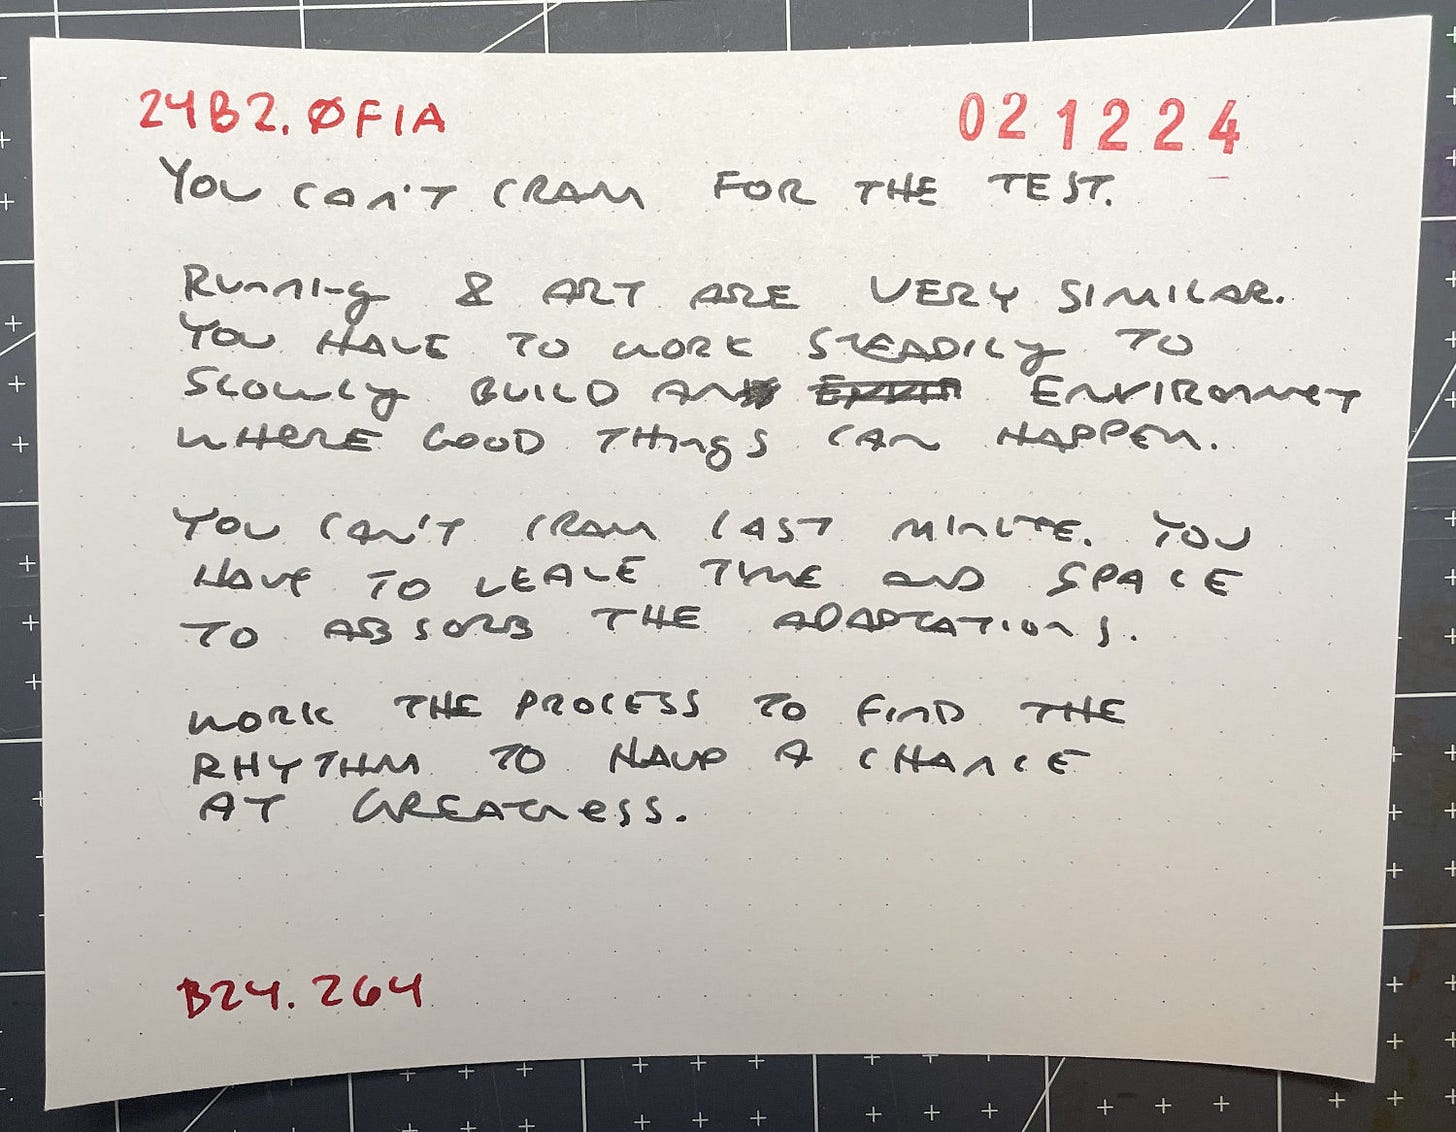 24B2.ØF1A
021224
You can't cram for the test.
Running & art are very similar.
You have to work steadily to
slowly build an enviromnet
where good things can happen.
You can't cram last minute. You
have to leave time and space
to absorb the adaptations.
Work the process to find the
rhythm to have a chance
at greatness.
B24.264